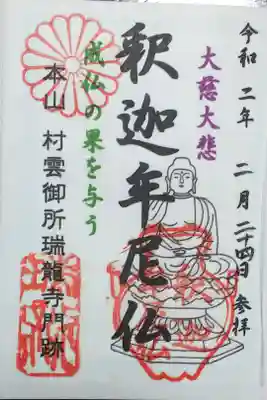 令和 二年 二月 二十四日 参拝
大慈大悲
釈迦牟尼仏
成仏の果を与う
本山 村雲御所瑞龍寺門跡